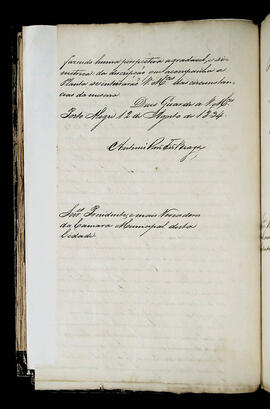 fazendo huma perspectiva agradavel, e si
metrica: da descripção que acompanha a
Planta se inteirarão V. Mces das circunstan
cias da mesma.
Deos Guarde a V. Mces
Porto Alegre 12 de Agosto de 1834.
Antonio
Snrs. Presidente, e mais Vereadores
da Camara Municipal desta
Cidade